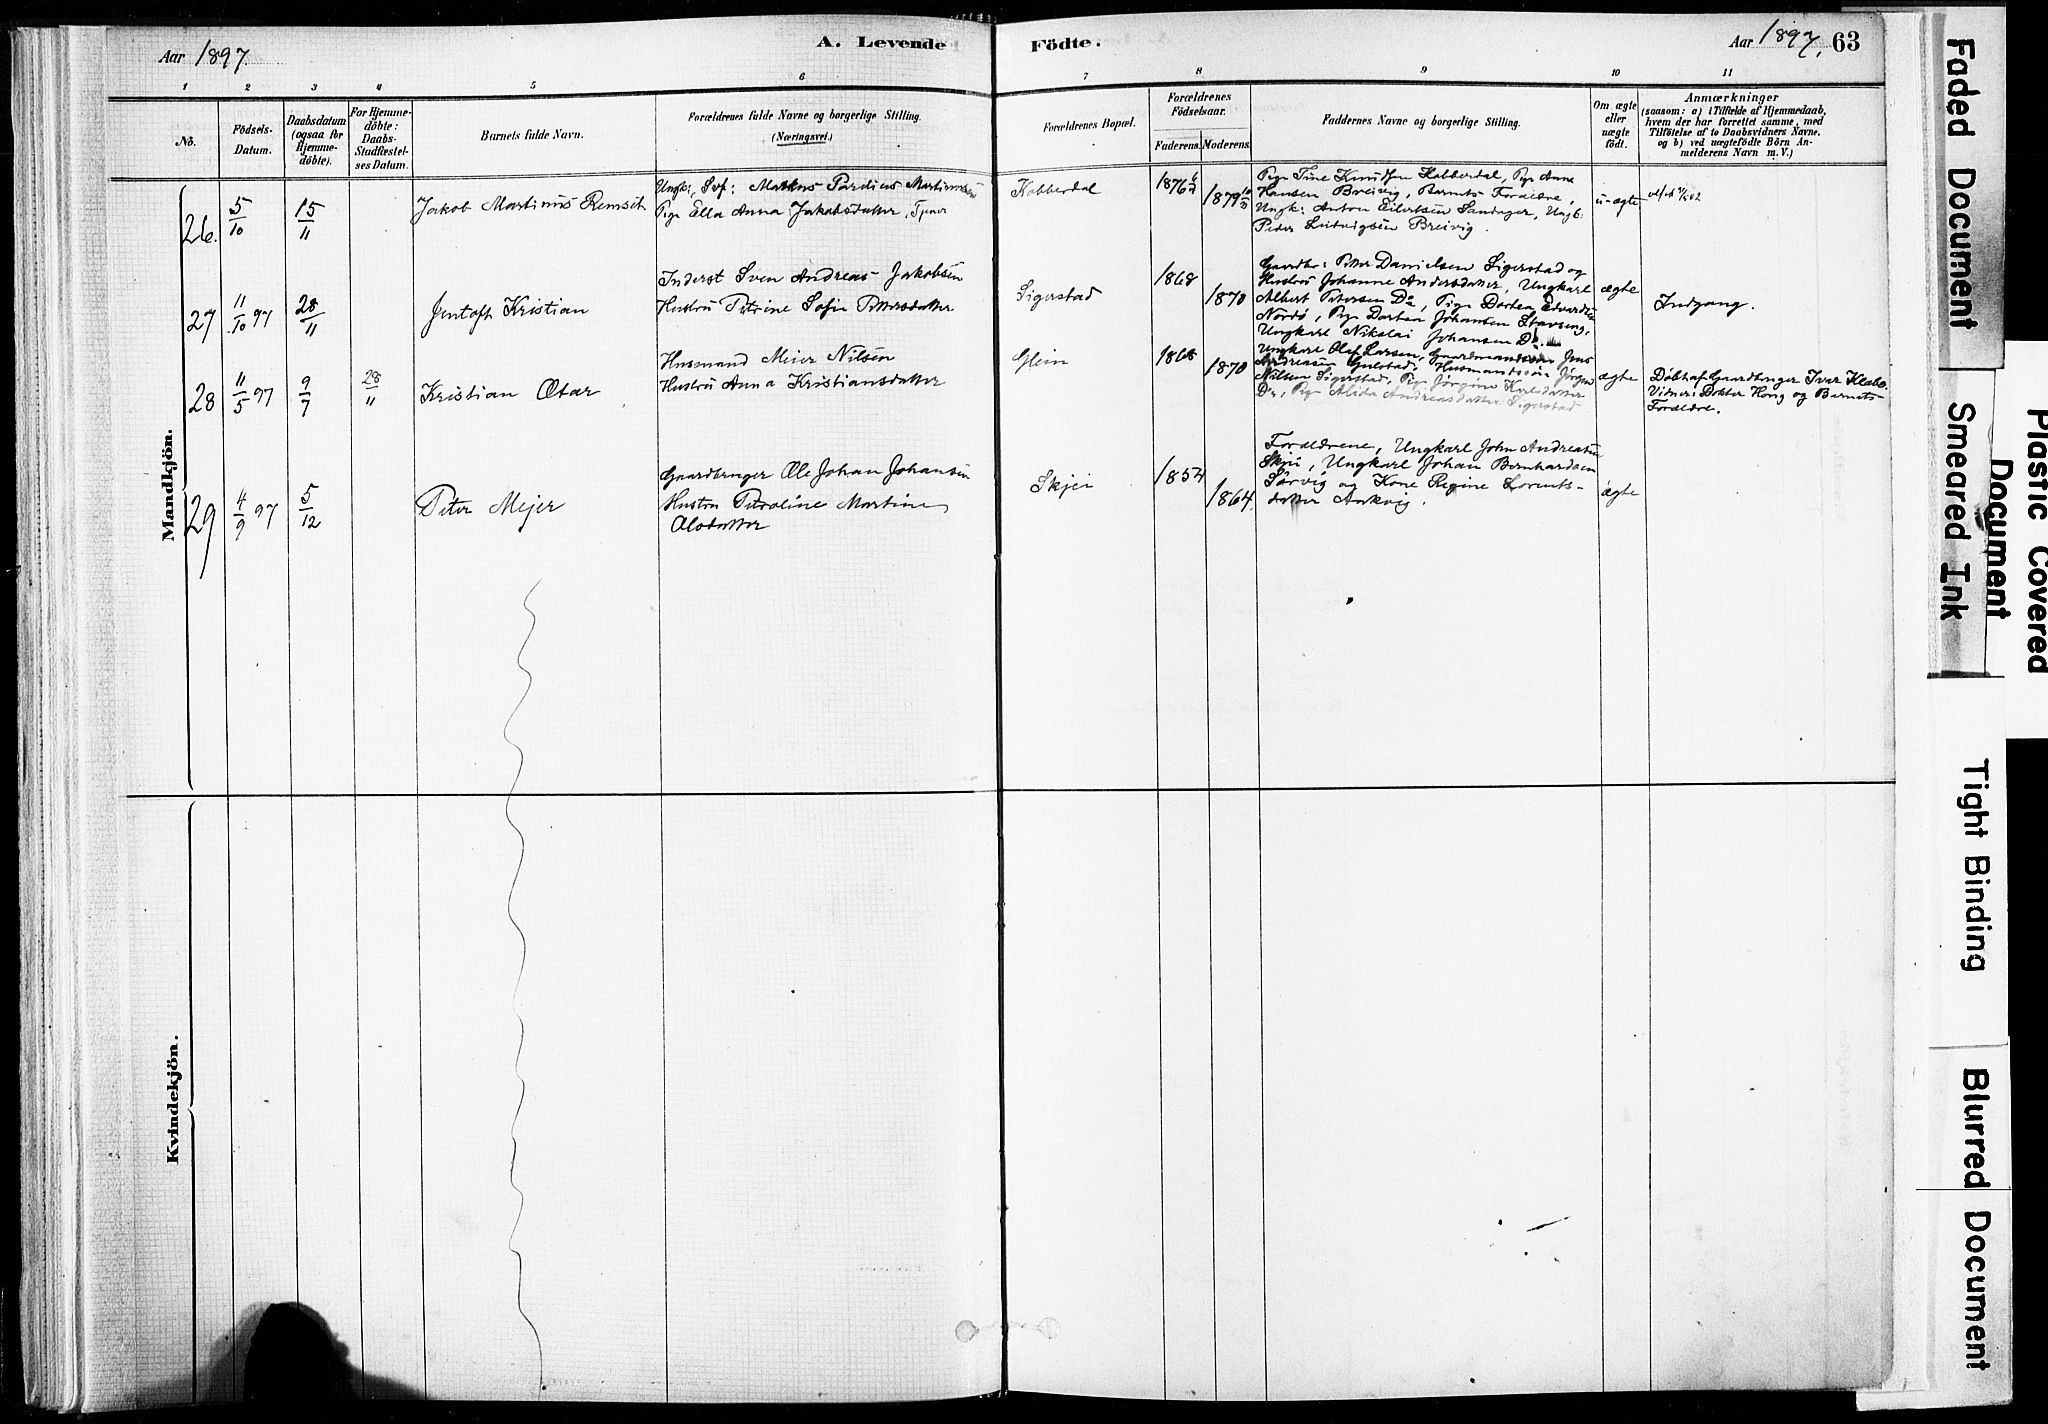 Aar 1897.
A. Levende
Födte.
Aar 1897.
63
1 2 3 4 5 6 7 8 9 10 11
No.
Födsels-
Datum.
Daabsdatum
(ogsaa for
Hjemme-
döbte).
For Hjemme-
döbte:
Daabs-
Stadfæstel-
ses Datum.
Barnets fulde Navn.
Forældrenes fulde Navne og borgerlige Stilling.
(Næringsvei.)
Forældrenes Bopæl.
Forældrenes
Födselsaar.
Faderens. Moderens.
Faddernes Navne og borgerlige Stilling.
Om ægte
eller
uægte
födt.
Anmærkninger
(saasom: a) i Tilfælde af Hjemmedaab,
hvem der har forrettet samme, med
Tilföielse af to Daabsvidners Navne,
og b) ved uægtefödte Börn An-
melderens Navn m. V.)
Mandkjön.
26.
5/10
15/11
Jakob Martinus Remseth
Ungk:, Søf: Markus Pardius
Pige Ella Anna Jakobsdatter, Tjener
Kobberdal
1876
1879
Pige Tine Knudsen Kobberdal, Pige Anna
Hansen Breivig, Barnets Forældre,
Ungk: Anton Eilertsen Sandager, Ungk:
Peder Ludvigsen Breivig.
u-ægte
27
11/10 97
28/11
Jentoft Kristian
Inderst Sven Andreas Jakobsen
Hustru Petrine Sofie Pettersdatter
Sigerstad
1868
1870
Gaardbr: Petter Danielsen Sigerstad og
Hustru Johanne Andersdatter, Ungkarl
Albert Petersen Do, Pige Dortea Edvardsen
Nordø, Pige Dortea Johansen Stavseng,
Ungkarl Nikolai Johansen Do.
ægte
Indgang.
28
11/5 97
9/7
28/11
Kristian Otar
Husmand Meier Nilsen
Hustru Anna Kristiansdatter
Glein
1868
1870
Ungkarl Olef Larsen, Gaardmandssøn Jens
Andreasen Gulstad, Husmandssøn Jörgen
Nilsen Sigerstad, Pige Jörgine Karlsdatter
Do, Pige Alida Andreasdatter Sigerstad
ægte
Döbt af Gaardbruger Ivar Klabo.
Vidner: Dokter Hong og Barnets
Forældre.
29
4/9 97
5/12
Peter Mejer
Gaardbruger Ole Johan Johansen
Hustru Petroline Martine
Olsdatter
Skjei
1854
1864.
Forældrene, Ungkarl John Andreasen
Skjei, Ungkarl Johan Bernhardsen
Sørvig og Kone Regine Lorents-
datter Aakvig.
ægte
Kvindekjön.
Faded Document
Smeared Ink
Plastic Covered
Document
Tight Binding
Blurred Document